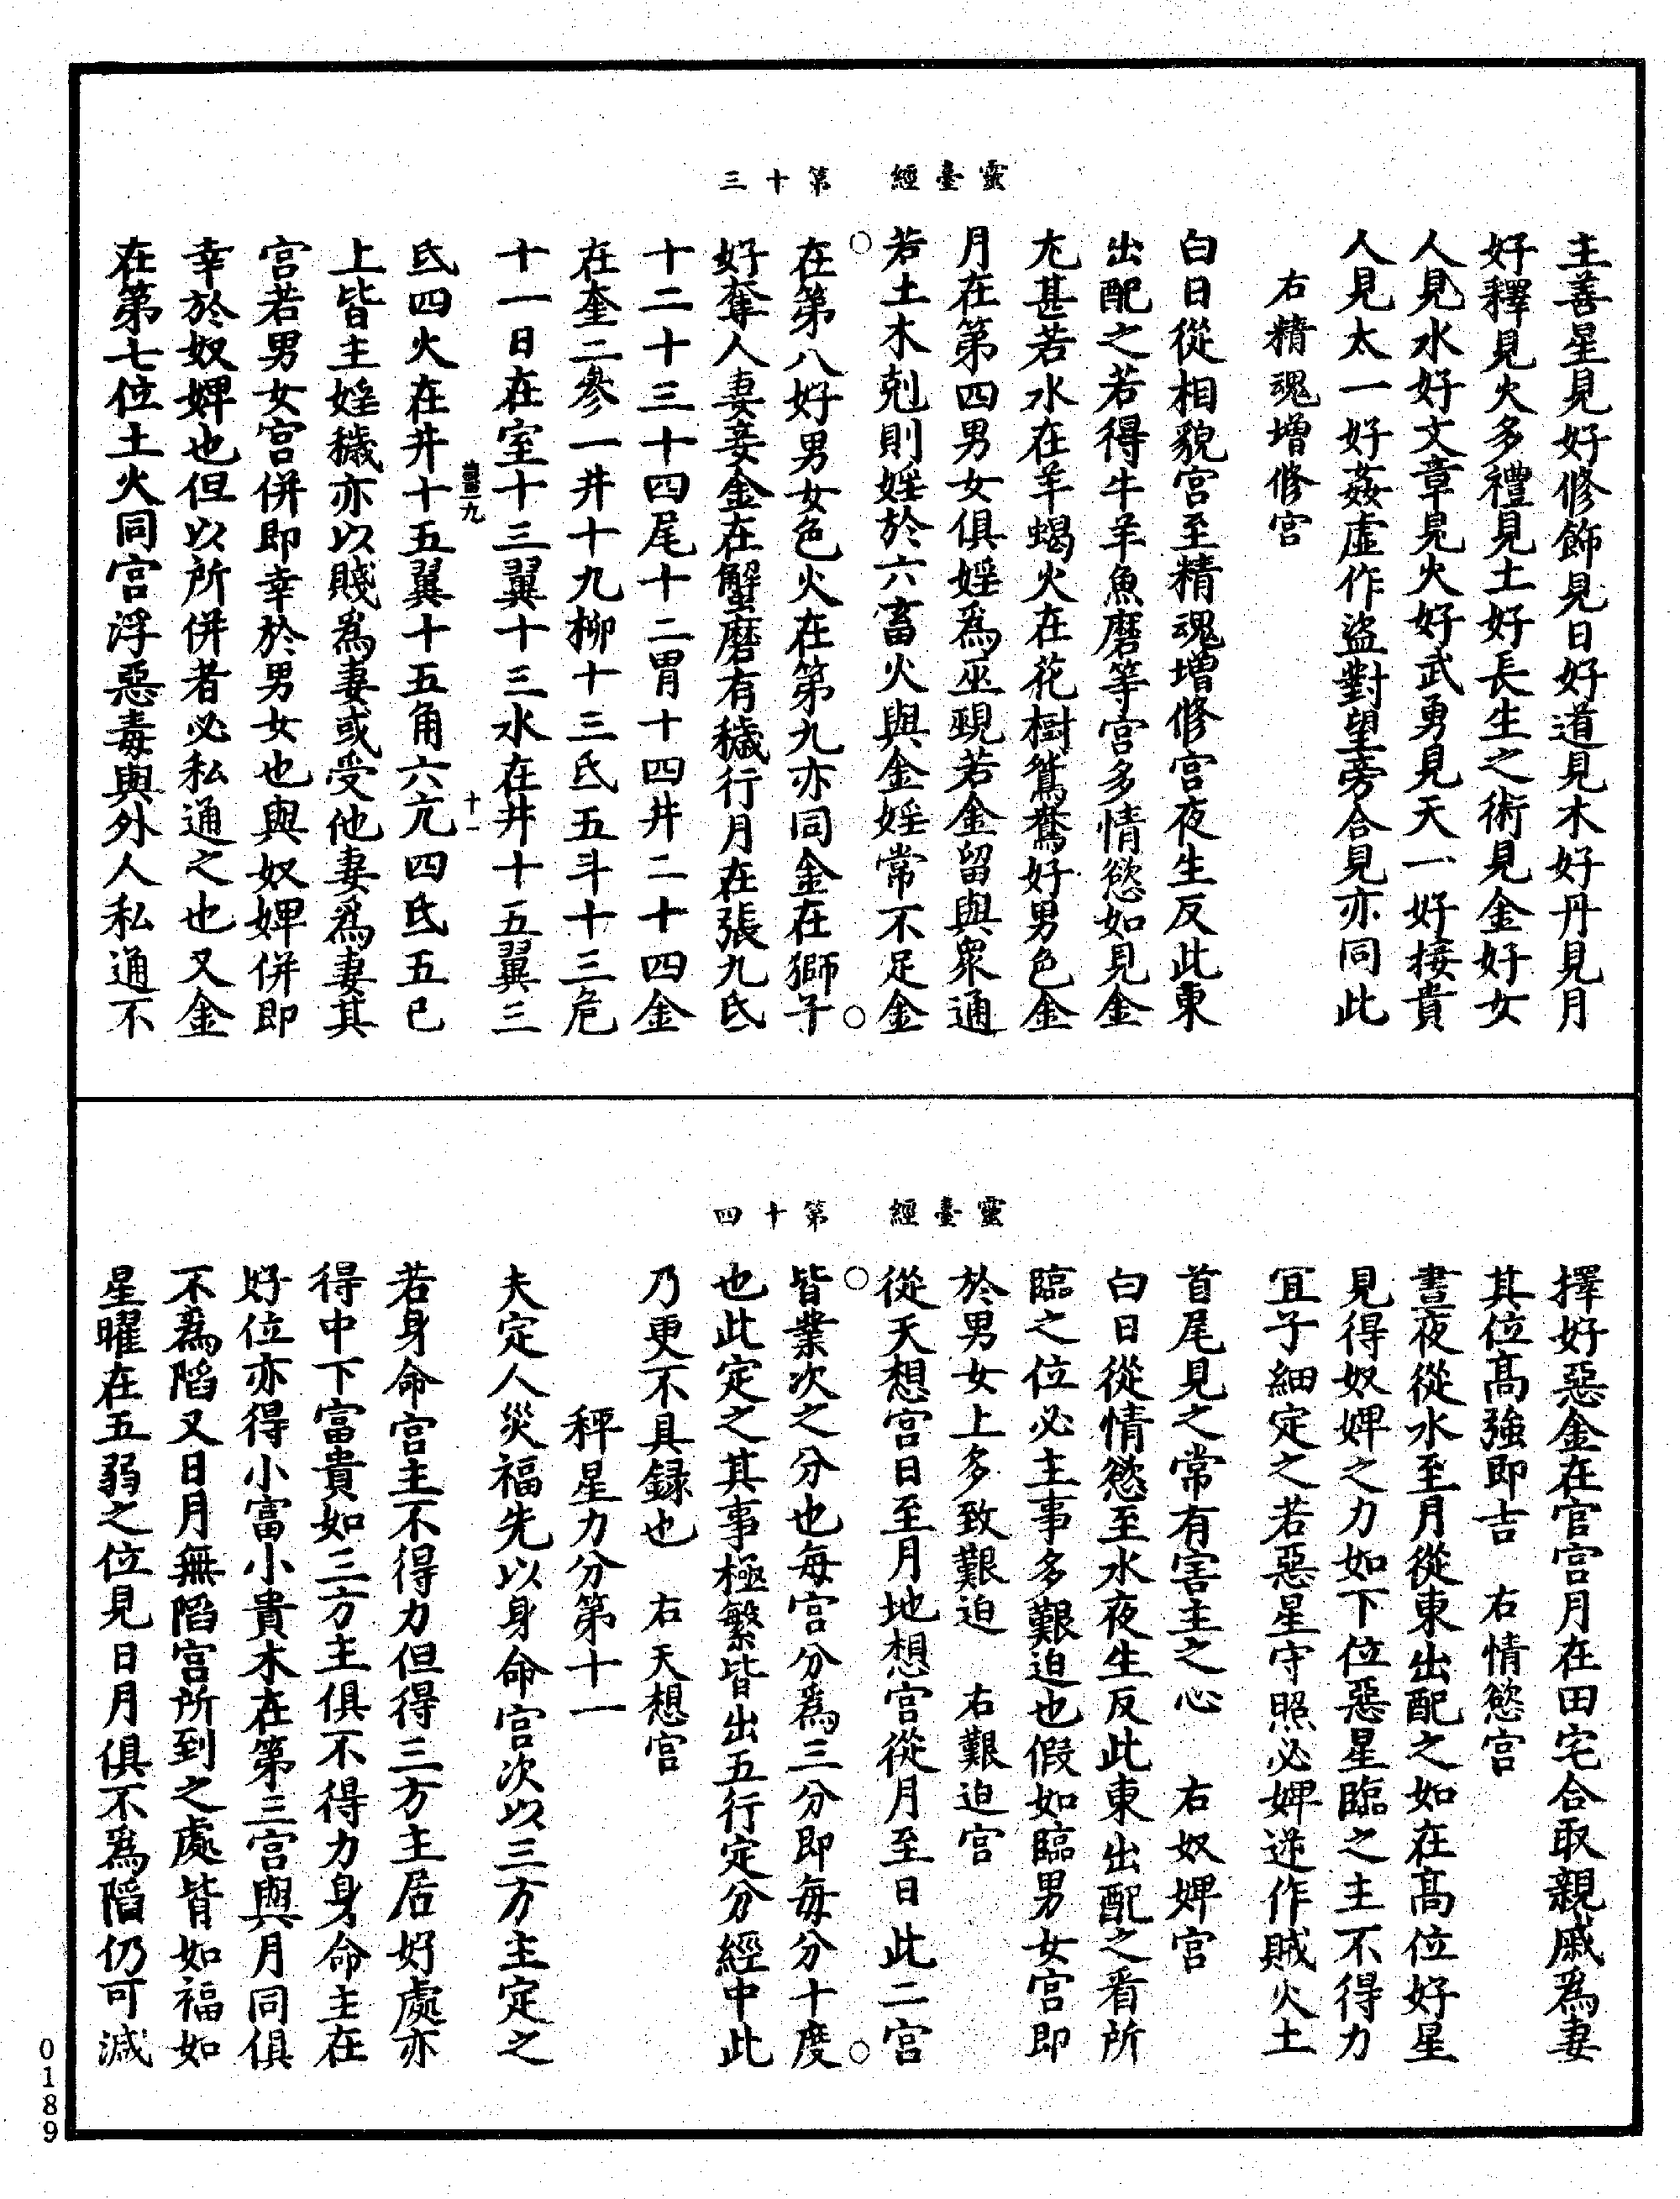 靈臺經　第十三
主善星見好修飾見日好道見木好丹見月
好釋見火多禮見土好長生之術見金好女
人見水好文章見火好武勇見天一好接貴
人見太一好姦虛作盜對望旁合見亦同此
右精魂增修宮
白日從相貌宮至精魂增修宮夜生反此東
出配之若得牛羊魚磨等宮多情慾如見金
尤甚若水在羊蝎火在花樹鴛鴦好男色金
月在第四男女俱婬爲巫覡若金留與衆通
若土木剋則婬於六畜火與金婬常不足金
在第八好男女色火在第九亦同金在獅子
好奪人妻妾金在蟹磨有穢行月在張九氐
十二十三十四尾十二胃十四井二十四金
在奎二參一井十九柳十三氐五斗十三危
十一日在室十三翼十三水在井十五翼三
氐四火在井十五翼十五角六亢四氐五已
十一
上皆主婬穢亦以賤爲妻或受他妻爲妻其
宮若男女宮併即幸於男女也與奴婢併即
幸於奴婢也但以所併者必私通之也又金
在第七位土火同宮浮惡毒與外人私通不
靈臺經　第十四
擇好惡金在官宮月在田宅合取親戚爲妻
其位高強即吉　右情慾宮
晝夜從水至月從東出配之如在高位好星
見得奴婢之力如下位惡星臨之主不得力
宜子細定之若惡星守照必婢逆作賊火土
首尾見之常有害主之心　右奴婢宮
白日從情慾至水夜生反此東出配之看所
臨之位必主事多艱迫也假如臨男女宮即
於男女上多致艱迫　右艱迫宮
從天想宮日至月地想宮從月至日此二宮
皆業次之分也每宮分爲三分即每分十度
也此定之其事極繁皆出五行定分經中此
乃更不具録也　右天想宮
秤星力分第十一
夫定人災福先以身命宮次以三方主定之
若身命宮主不得力但得三方主居好處亦
得中下富貴如三方主俱不得力身命主在
好位亦得小富小貴木在第三宮與月同俱
不爲陷又日月無陷宮所到之處皆如福如
星曜在五弱之位見日月俱不爲陷仍可減
0189